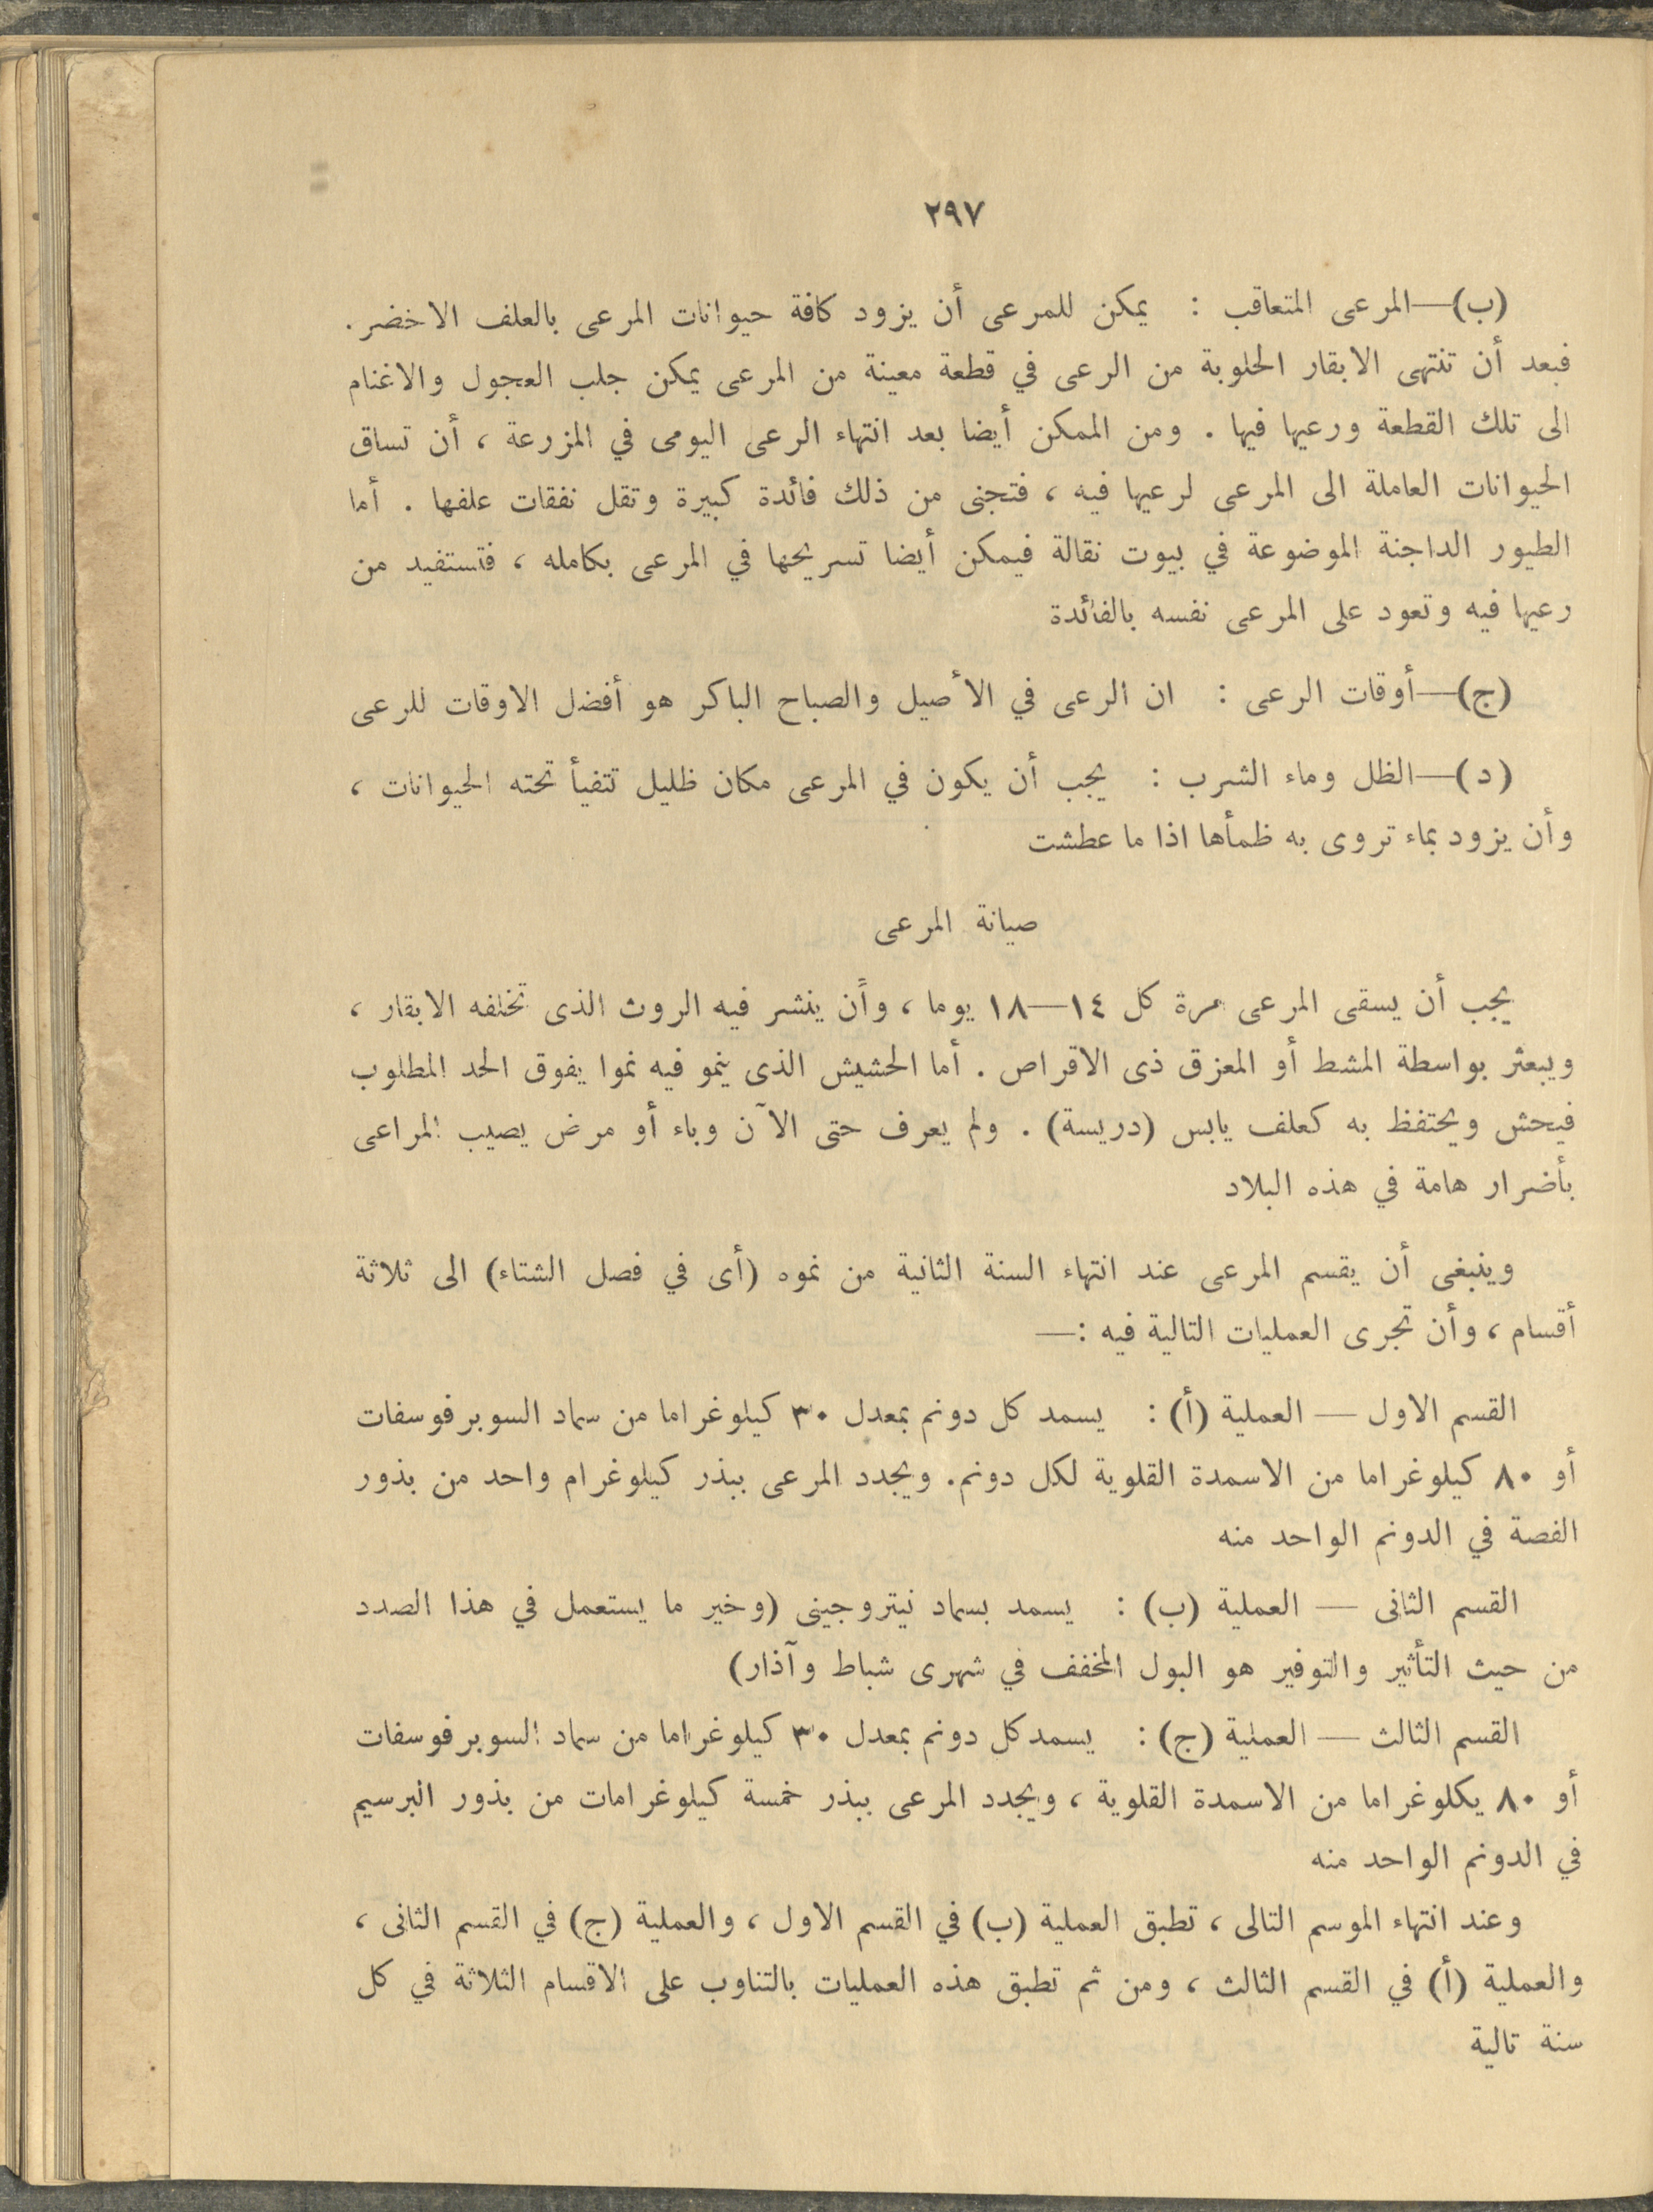 ٢٩٧
(ب)—المرعى المتعاقب : يمكن للمرعى أن يزود كافة حيوانات المرعى بالعلف الاخضر.
فبعد أن تنتهى الابقار الحلوبة من الرعى في قطعة معينة من المرعى يمكن جلب العجول والاغنام
الى تلك القطعة ورعيها فيها . ومن الممكن أيضا بعد انتهاء الرعى اليومى في المزرعة ، أن تساق
الحيوانات العاملة الى المرعى لرعيها فيه ، فتجنى من ذلك فائدة كبيرة وتقل نفقات علفها . أما
الطيور الداجنة الموضوعة في بيوت نقالة فيمكن أيضا تسريحها في المرعى بكامله ، فتستفيد من
رعيها فيه وتعود على المرعى نفسه بالفائدة
(ج)—أوقات الرعى : ان الرعى في الأصيل والصباح الباكر هو أفضل الاوقات للرعى
(د)—الظل وماء الشرب : يجب أن يكون في المرعى مكان ظليل تتفيأ تحته الحيوانات ،
وأن يزود بماء تروى به ظمأها اذا ما عطشت
صيانة المرعى
يجب أن يسقى المرعى مرة كل ١٤—١٨ يوما ، وأن ينشر فيه الروث الذى تخلفه الابقار ،
ويبعثر بواسطة المشط أو المعزق ذى الاقراص . أما الحشيش الذى ينمو فيه نموا يفوق الحد المطلوب
فيحش ويحتفظ به كعلف يابس (دريسة) . ولم يعرف حتى الآن وباء أو مرض يصيب المراعى
بأضرار هامة في هذه البلاد
وينبغى أن يقسم المرعى عند انتهاء السنة الثانية من نموه (أى في فصل الشتاء) الى ثلاثة
أقسام ، وأن تجرى العمليات التالية فيه :—
القسم الاول — العملية (أ) : يسمد كل دونم بمعدل ٣٠ كيلوغراما من سماد السوبرفوسفات
أو ٨٠ كيلوغراما من الاسمدة القلوية لكل دونم. ويجدد المرعى ببذر كيلوغرام واحد من بذور
الفصة في الدونم الواحد منه
القسم الثانى — العملية (ب) : يسمد بسماد نيتروجينى (وخير ما يستعمل في هذا الصدد
من حيث التأثير والتوفير هو البول المخفف في شهرى شباط وآذار)
القسم الثالث — العملية (ج) : يسمد كل دونم بمعدل ٣٠ كيلوغراما من سماد السوبرفوسفات
أو ٨٠ يكلوغراما من الاسمدة القلوية ، ويجدد المرعى ببذر خمسة كيلوغرامات من بذور البرسيم
في الدونم الواحد منه
وعند انتهاء الموسم التالى ، تطبق العملية (ب) في القسم الاول ، والعملية (ج) في القسم الثانى ،
والعملية (أ) في القسم الثالث ، ومن ثم تطبق هذه العمليات بالتناوب على الاقسام الثلاثة في كل
سنة تالية